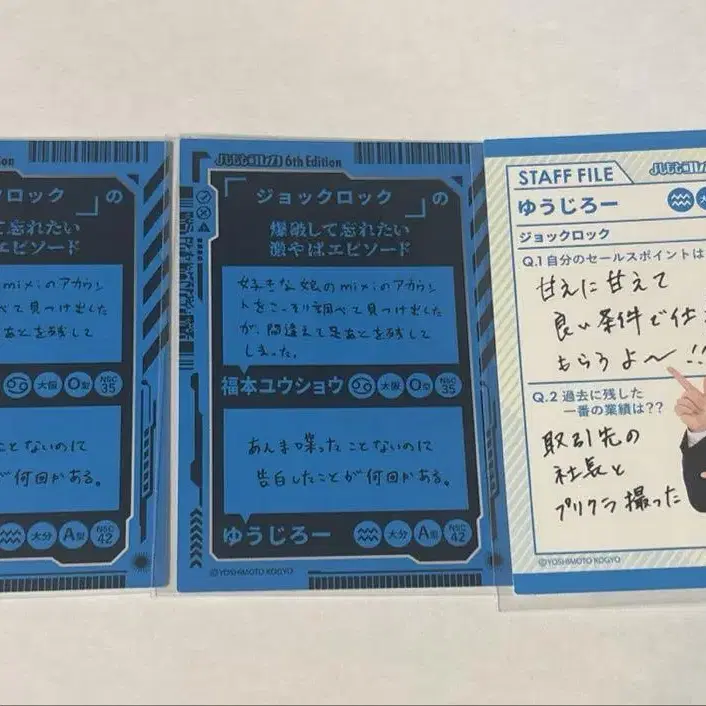 ion
クロック
の
て忘れたい
エピソード
mixiのアカウン
べて見つけ出した
あとを残して
大阪
O型
NSC
35
ことないのに
が何回かある。
大分
A型
NSC
42
6th Edition
ジョックロック
の
爆破して忘れたい
激やばエピソード
好きな娘のmixiのアカウン
トをこっそり調べて見つけ出した
が、間違えて足あとを残して
しまった。
福本ユウショウ
大阪
O型
NSC
35
あんま喋ったことないのに
告白したことが何回かある。
ゆうじろー
大分
A型
NSC
42
©YOSHIMOTO KOGYO
STAFF FILE
ゆうじろー
大
ジョックロック
Q.1 自分のセールスポイントは
甘えに甘えて
良い条件で仕
もらうよ〜!!
Q.2 過去に残した
一番の業績は??
取引先の
社長と
プリクラ撮った
©YOSHIMOTO KOGYO